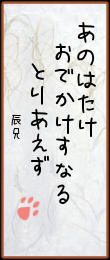 あのはたけ
おでかけすなる
とりあえず
辰兄